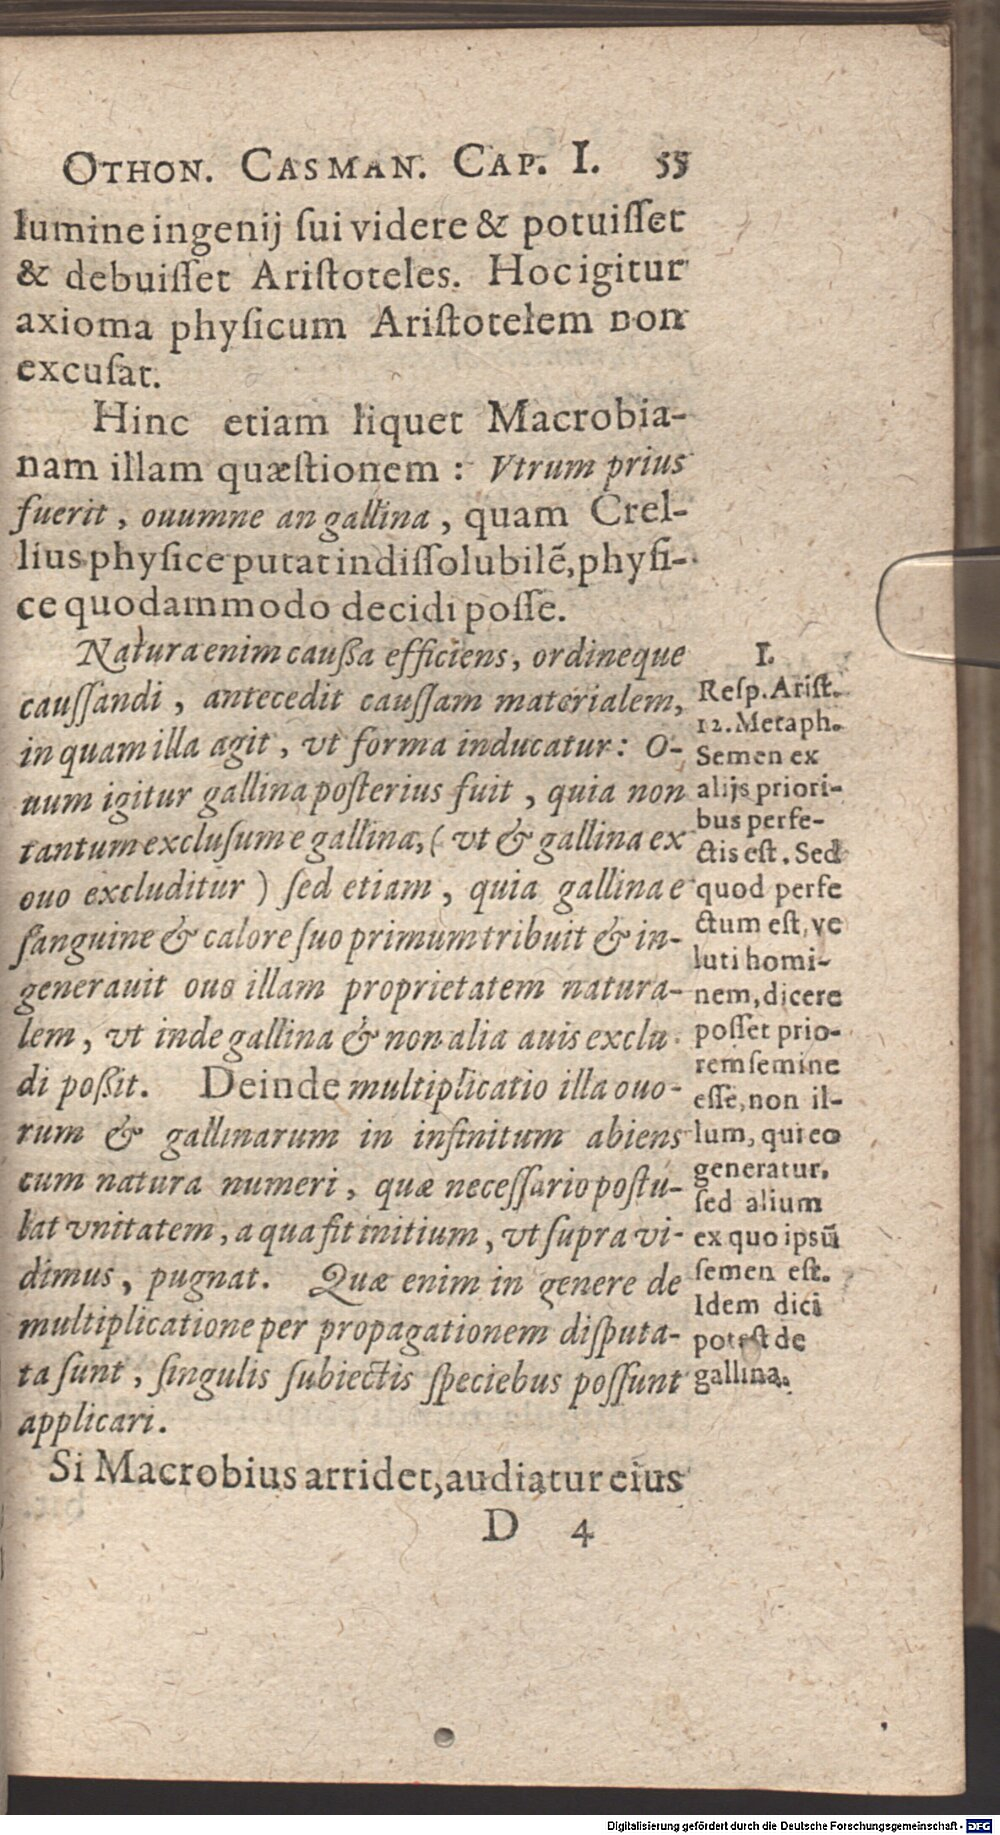 OTHON. CASMAN. CAP. I. 55
lumine ingenij ſui videre & potuiſſet
& debuiſſet Ariſtoteles. Hoc igitur
axioma phyſicum Ariſtotelem non
excuſat.
Hinc etiam liquet Macrobia-
nam illam quæſtionem : Vtrum prius
fuerit, ouumne an gallina, quam Crel-
lius phyſice putat indiſſolubilē, phyſi-
ce quodammodo decidi poſſe.
Natura enim caußa efficiens, ordineque
cauſſandi, antecedit cauſſam materialem,
in quam illa agit, vt forma inducatur: O-
uum igitur gallina poſterius fuit, quia non
tantum excluſum e gallina, (vt & gallina ex
ouo excluditur) ſed etiam, quia gallina e
ſanguine & calore ſuo primum tribuit & in-
generauit ouo illam proprietatem natura-
lem, vt inde gallina & non alia auis exclu-
di poßit. Deinde multiplicatio illa ouo-
rum & gallinarum in infinitum abiens
cum natura numeri, quæ neceſſario poſtu-
lat vnitatem, a qua fit initium, vt ſupra vi-
dimus, pugnat. Quæ enim in genere de
multiplicatione per propagationem diſputa-
ta ſunt, ſingulis ſubiectis ſpeciebus poſſunt
applicari.
Si Macrobius arridet, audiatur eius
D 4
I.
Reſp. Ariſt.
12. Metaph.
Semen ex
alijs priori-
bus perfe-
ctis eſt. Sed
quod perfe
ctum eſt, ve
luti homi-
nem, dicere
poſſet prio-
rem ſemine
eſſe, non il-
lum, qui eo
generatur,
ſed alium
ex quo ipsū
ſemen eſt.
Idem dici
poteſt de
gallina.
Digitalisierung gefördert durch die Deutsche Forschungsgemeinschaft - DFG